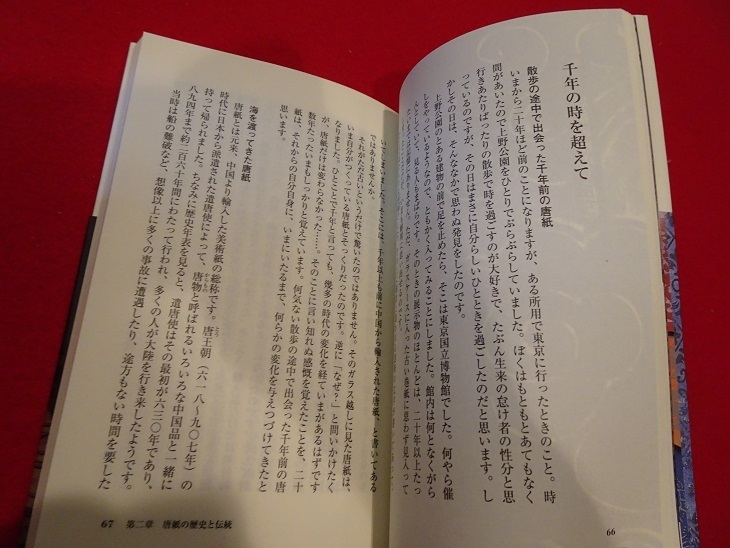 千年の時を超えて
散歩の途中で出会った千年前の唐紙
いまから二十年ほど前のことになりますが、ある所用で東京に行ったときのこと。時
間があいたので上野公園をひとりでぶらぶらしていました。ぼくはもともとあてもなく
行きあたりばったりの散歩で時を過ごすのが大好きで、たぶん生来の怠け者の性分と思
っているのですが、その日はまさに自分らしいひとときを過ごしたのだと思います。し
かしその日は、そんななかで思わぬ発見をしたのです。
上野公園のとある建物の前で足を止めたら、そこは東京国立博物館でした。何やら催
しをやっているようなので、ともかく入ってみることにしました。館内は何となくがら
んとしていて、見る人もまばらです。そのときの展示物のほとんどは、二十年以上たっ
ガラスケースに入った古い巻紙に思わず見入って
66
千年以上も前に中国から輸入された唐紙、と書いてある
ではありませんか。
それがただ古いというだけで驚いたのではありません。そのガラス越しに見た唐紙は、
いま自分がつくっている唐紙とそっくりだったのです。逆に「なぜ？」と問いかけたく
なりました。ひとことで千年と言っても、幾多の時代の変化を経ていまがあるはずです
が、唐紙だけは変わらなかった……。そのことに言い知れぬ感慨を覚えたことを、二十
数年たったいまもしっかりと覚えています。何気ない散歩の途中で出会った千年前の唐
紙は、それからの自分自身に、いまにいたるまで、何らかの変化を与えつづけてきたと
思います。
海を渡ってきた唐紙
唐紙とは元来、中国より輸入した美術紙の総称です。唐王朝（六一八～九〇七年）の
時代に日本から派遣された遣唐使によって、唐物と呼ばれるいろいろな中国品と一緒に
持って帰られました。ちなみに歴史年表を見ると、遣唐使はその最初が六三〇年であり、
八九四年まで約二百六十年間にわたって行われ、多くの人が大陸を行き来したようです。
当時は船の難破など、想像以上に多くの事故に遭遇したり、途方もない時間を要した
67 第二章 唐紙の歴史と伝統